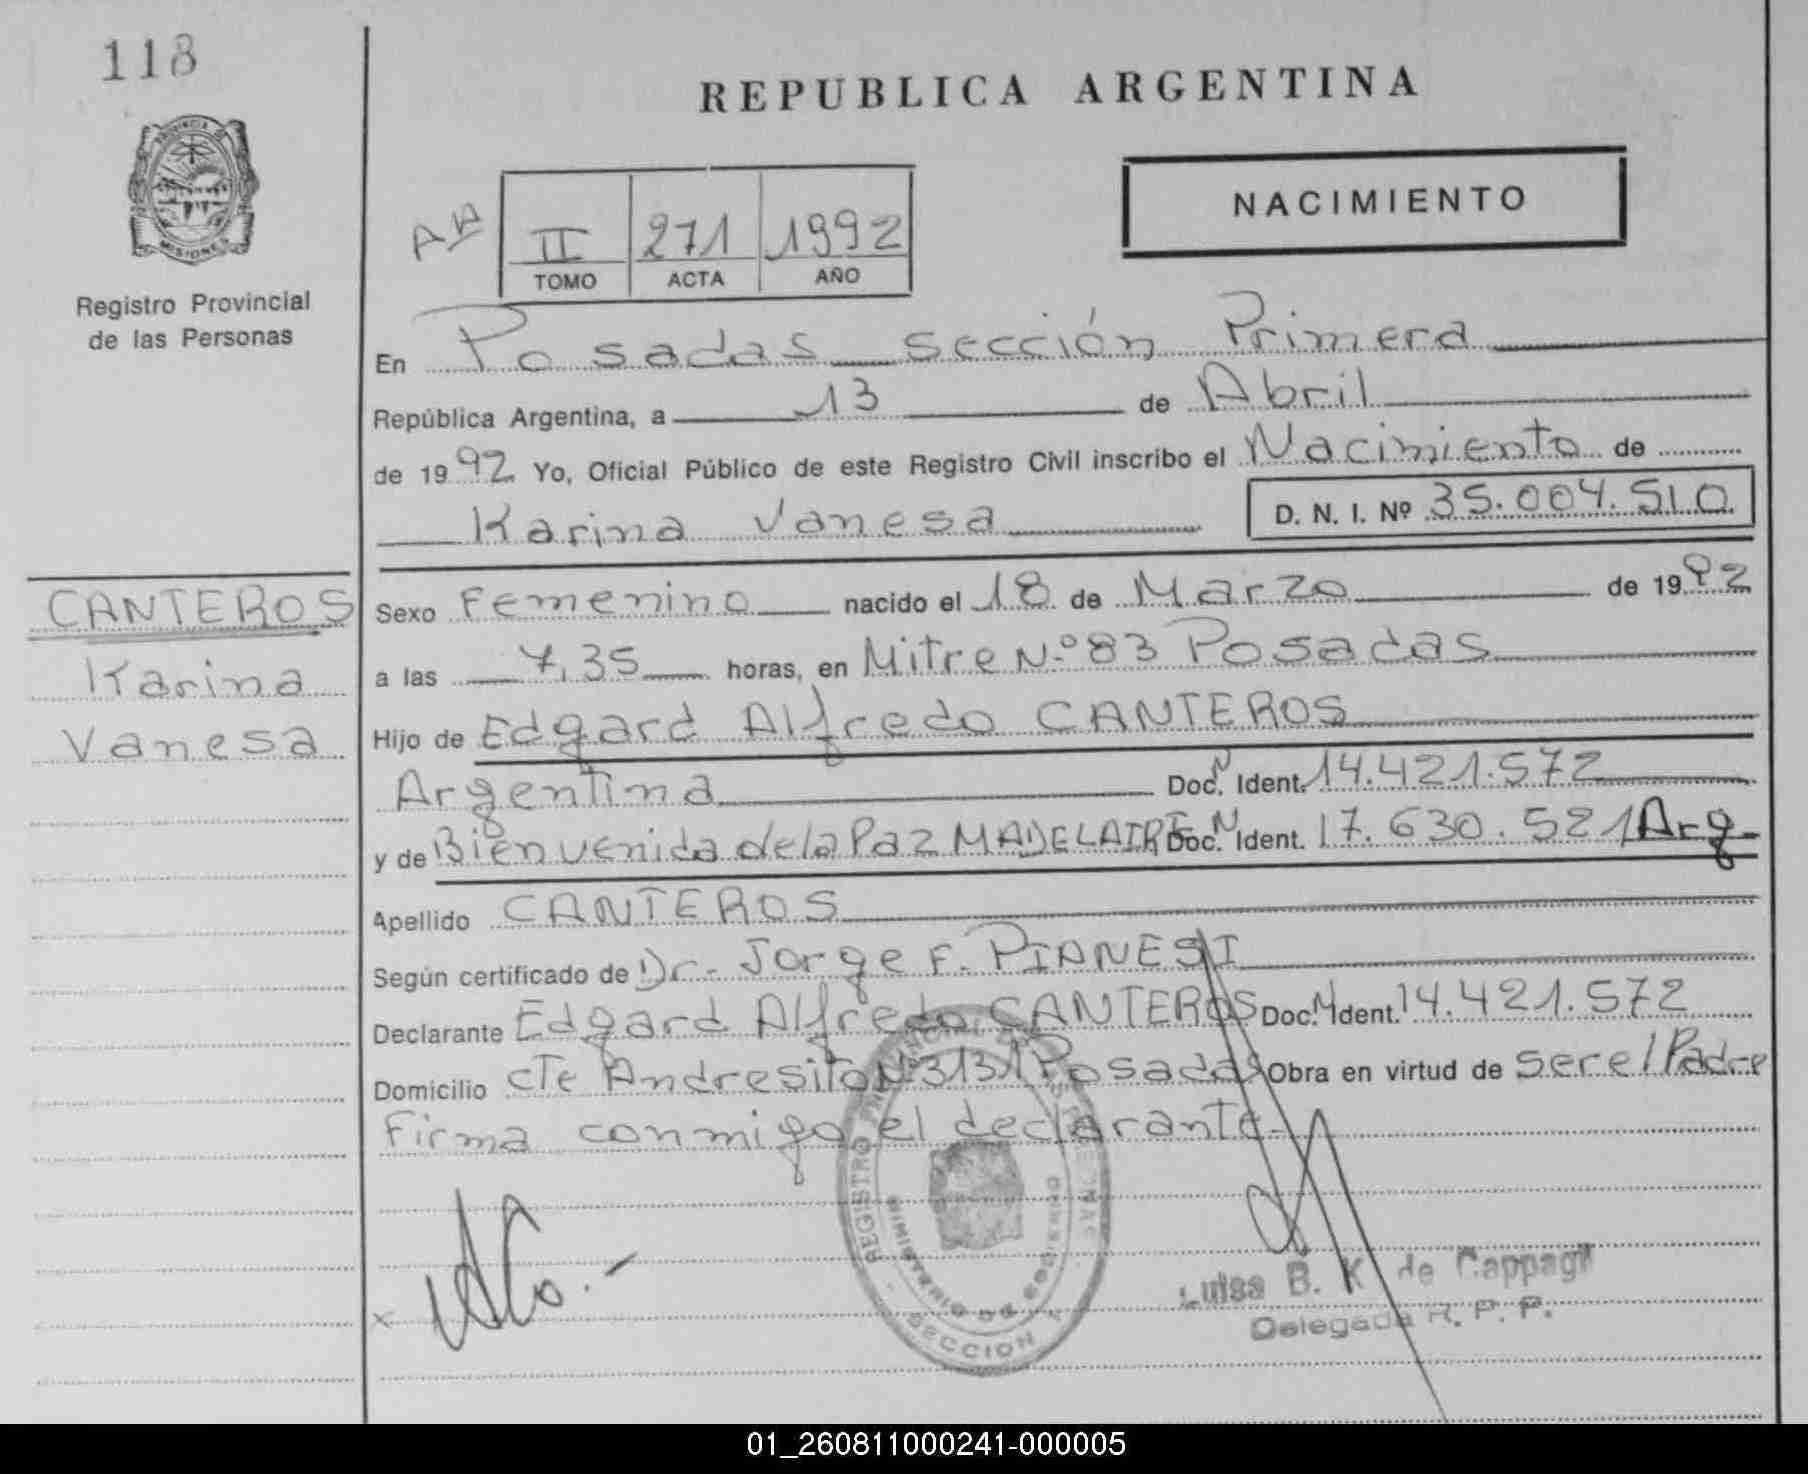 118
REPUBLICA ARGENTINA
PROVINCIA DE
MISIONES
Registro Provincial
de las Personas
II 271 1992
TOMO ACTA AÑO
NACIMIENTO
En Posadas sección Primera
República Argentina, a 13 de Abril
de 1992 Yo, Oficial Público de este Registro Civil inscribo el Nacimiento de
Karina Vanesa D. N. I. Nº 35.004.510
CANTEROS
Karina
Vanesa
Sexo Femenino nacido el 18 de Marzo de 1992
a las 7,35 horas, en Mitre N.º 83 Posadas
Hijo de Edgard Alfredo CANTEROS
Argentina Doc. N Ident. 14.421.572
y de Bienvenida de la Paz MADELAIRE Doc. N Ident. 17.630.521 Arg.
Apellido CANTEROS
Según certificado de Dr. Jorge F. PIANESI
Declarante Edgard Alfredo CANTEROS Doc. N Ident. 14.421.572
Domicilio cTe Andresito Nº 3131 Posadas Obra en virtud de ser el Padre
Firma conmigo el declarante.-
REGISTRO PROVINCIAL DE LAS PERSONAS
MINISTERIO DE GOBIERNO
SECCION 1ª
Luisa B. K. de Cappagli
Delegada R. P. P.
01_260811000241-000005